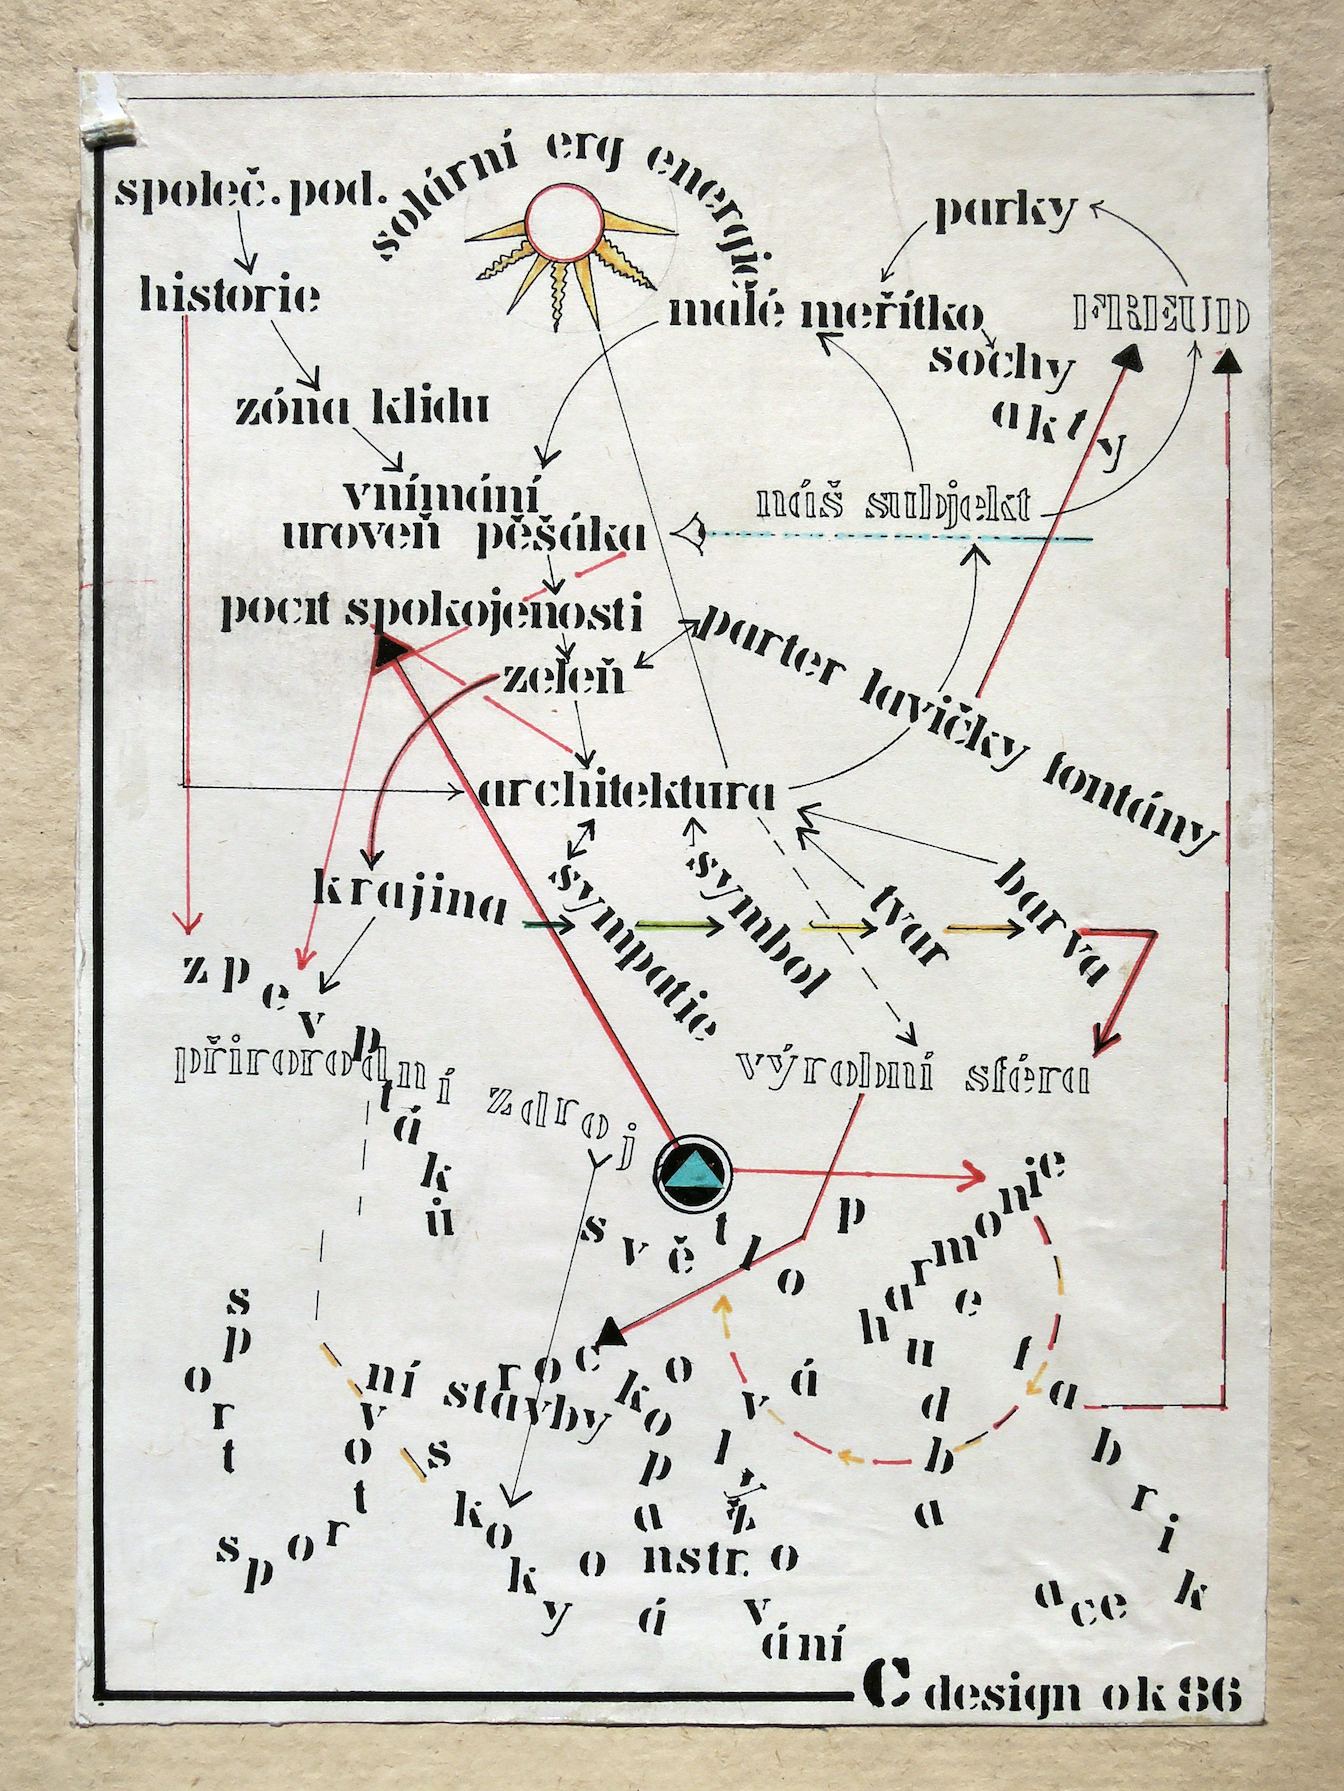 solární erg energie
společ. pod.
parky
historie
malé meřítko
FREUD
sochy
akty
zóna klidu
vnímání
náš subjekt
uroveň pěšáka
pocit spokojenosti
parter lavičky fontány
zeleň
architektura
krajina
sympatie
symbol
tvar
barva
zpěv ptáků
přirorodní zdroj
výrobní sféra
světlo
p
harmonie
hudba
e
sport
ní stavby
roc
sport
skoky
vot
kop
o
á
fabrik
ace
a
o nstr. o
á
vání
C design ok 86